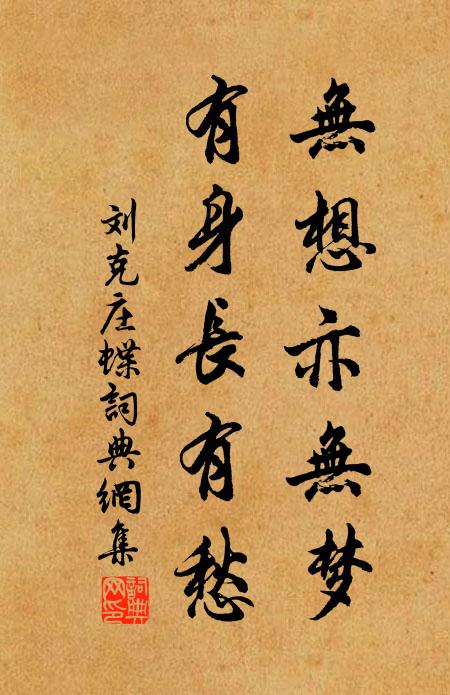 無想亦無梦
有身長有愁
刘克庄蝶詞典網集
詞典
网印